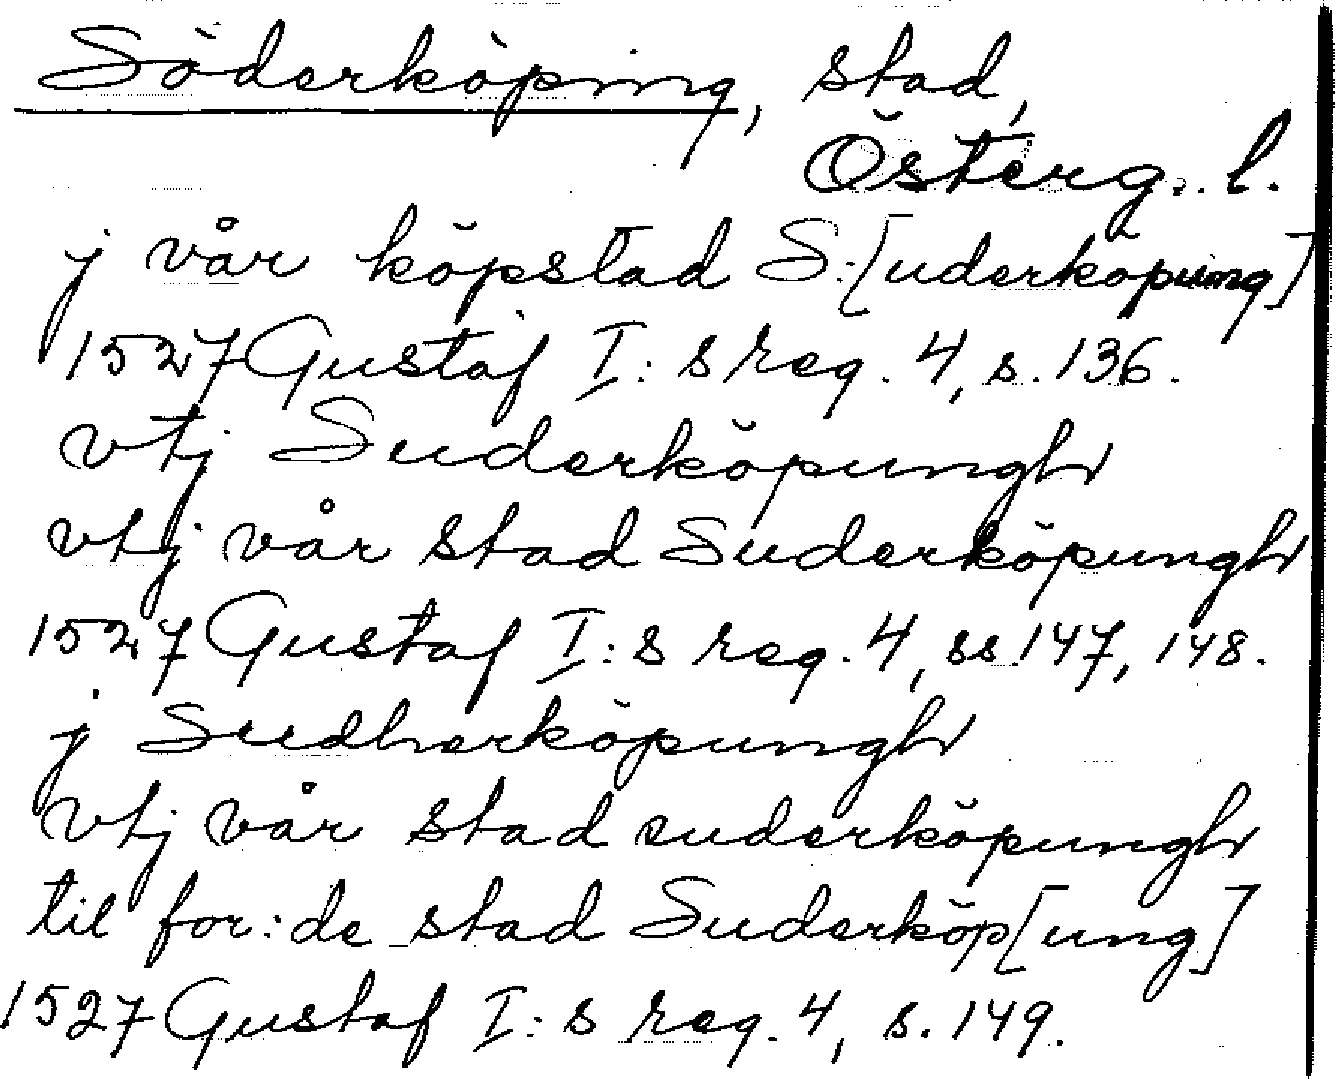 Söderköping, stad,
Österg. l.
j vår köpstad S:[uderköpung]
1527 Gustaf I: s reg. 4, s. 136.
vtj Suderköpungh
vtj vår stad Suderköpungh
1527 Gustaf I: s reg. 4, ss 147, 148.
j Sudherköpungh
vtj vår stad suderköpungh
til for:de stad Suderköp[ung]
1527 Gustaf I: s reg. 4, s. 149.